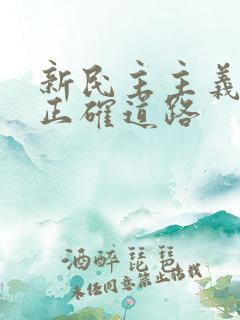 新民主主義
正確道路
酒醉琵琶
未经同意禁止转载